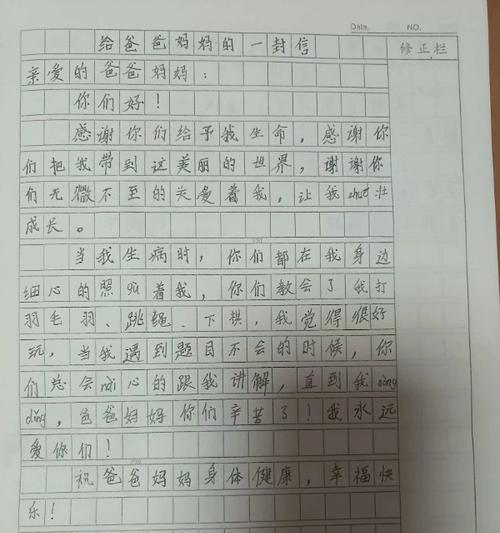 Date. NO.
给爸爸妈妈的一封信
修正栏
亲爱的爸爸妈妈：
你们好！
感谢你们给予我生命，感谢你
们把我带到这美丽的世界，谢谢你
们无微不至的关爱着我，让我zhuó壮
成长。
当我生病时，你们都在我身边
细心的照gu着我，你们教会了我打
羽毛羽、跳绳、下拱，我觉得很好
玩，当我遇到题目不会的时候，你
们总会nài心的跟我讲解，直到我nòng
dǒng，爸爸妈妈你们辛苦了！我永远
爱你们！
祝爸爸妈妈身体健康，幸福快
乐！